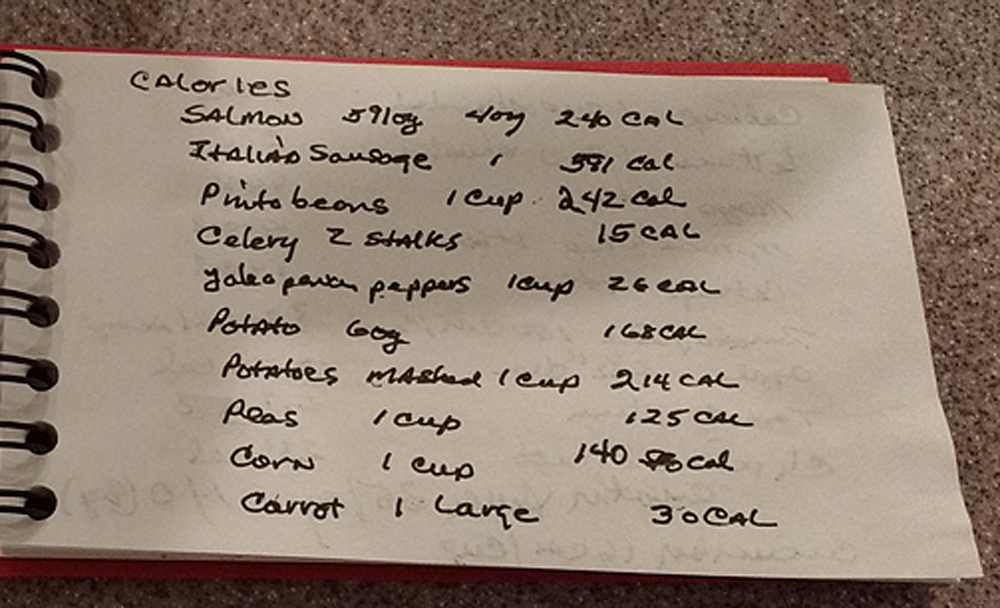 Calories
Salmon 240 CAL
Italian Sausage 1 591 Cal
Pinto beans 1 Cup 242 Cal
Celery 2 stalks 15 CAL
peppers 1 cup 26 CAL
Potato 60g 168 CAL
Potatoes mashed 1 cup 214 CAL
Peas 1 cup 125 CAL
Corn 1 cup 140 Cal
Carrot 1 Large 30 CAL